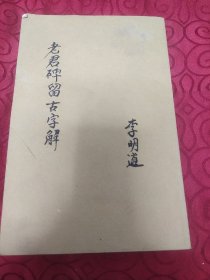 老君碑留古字解
李明道